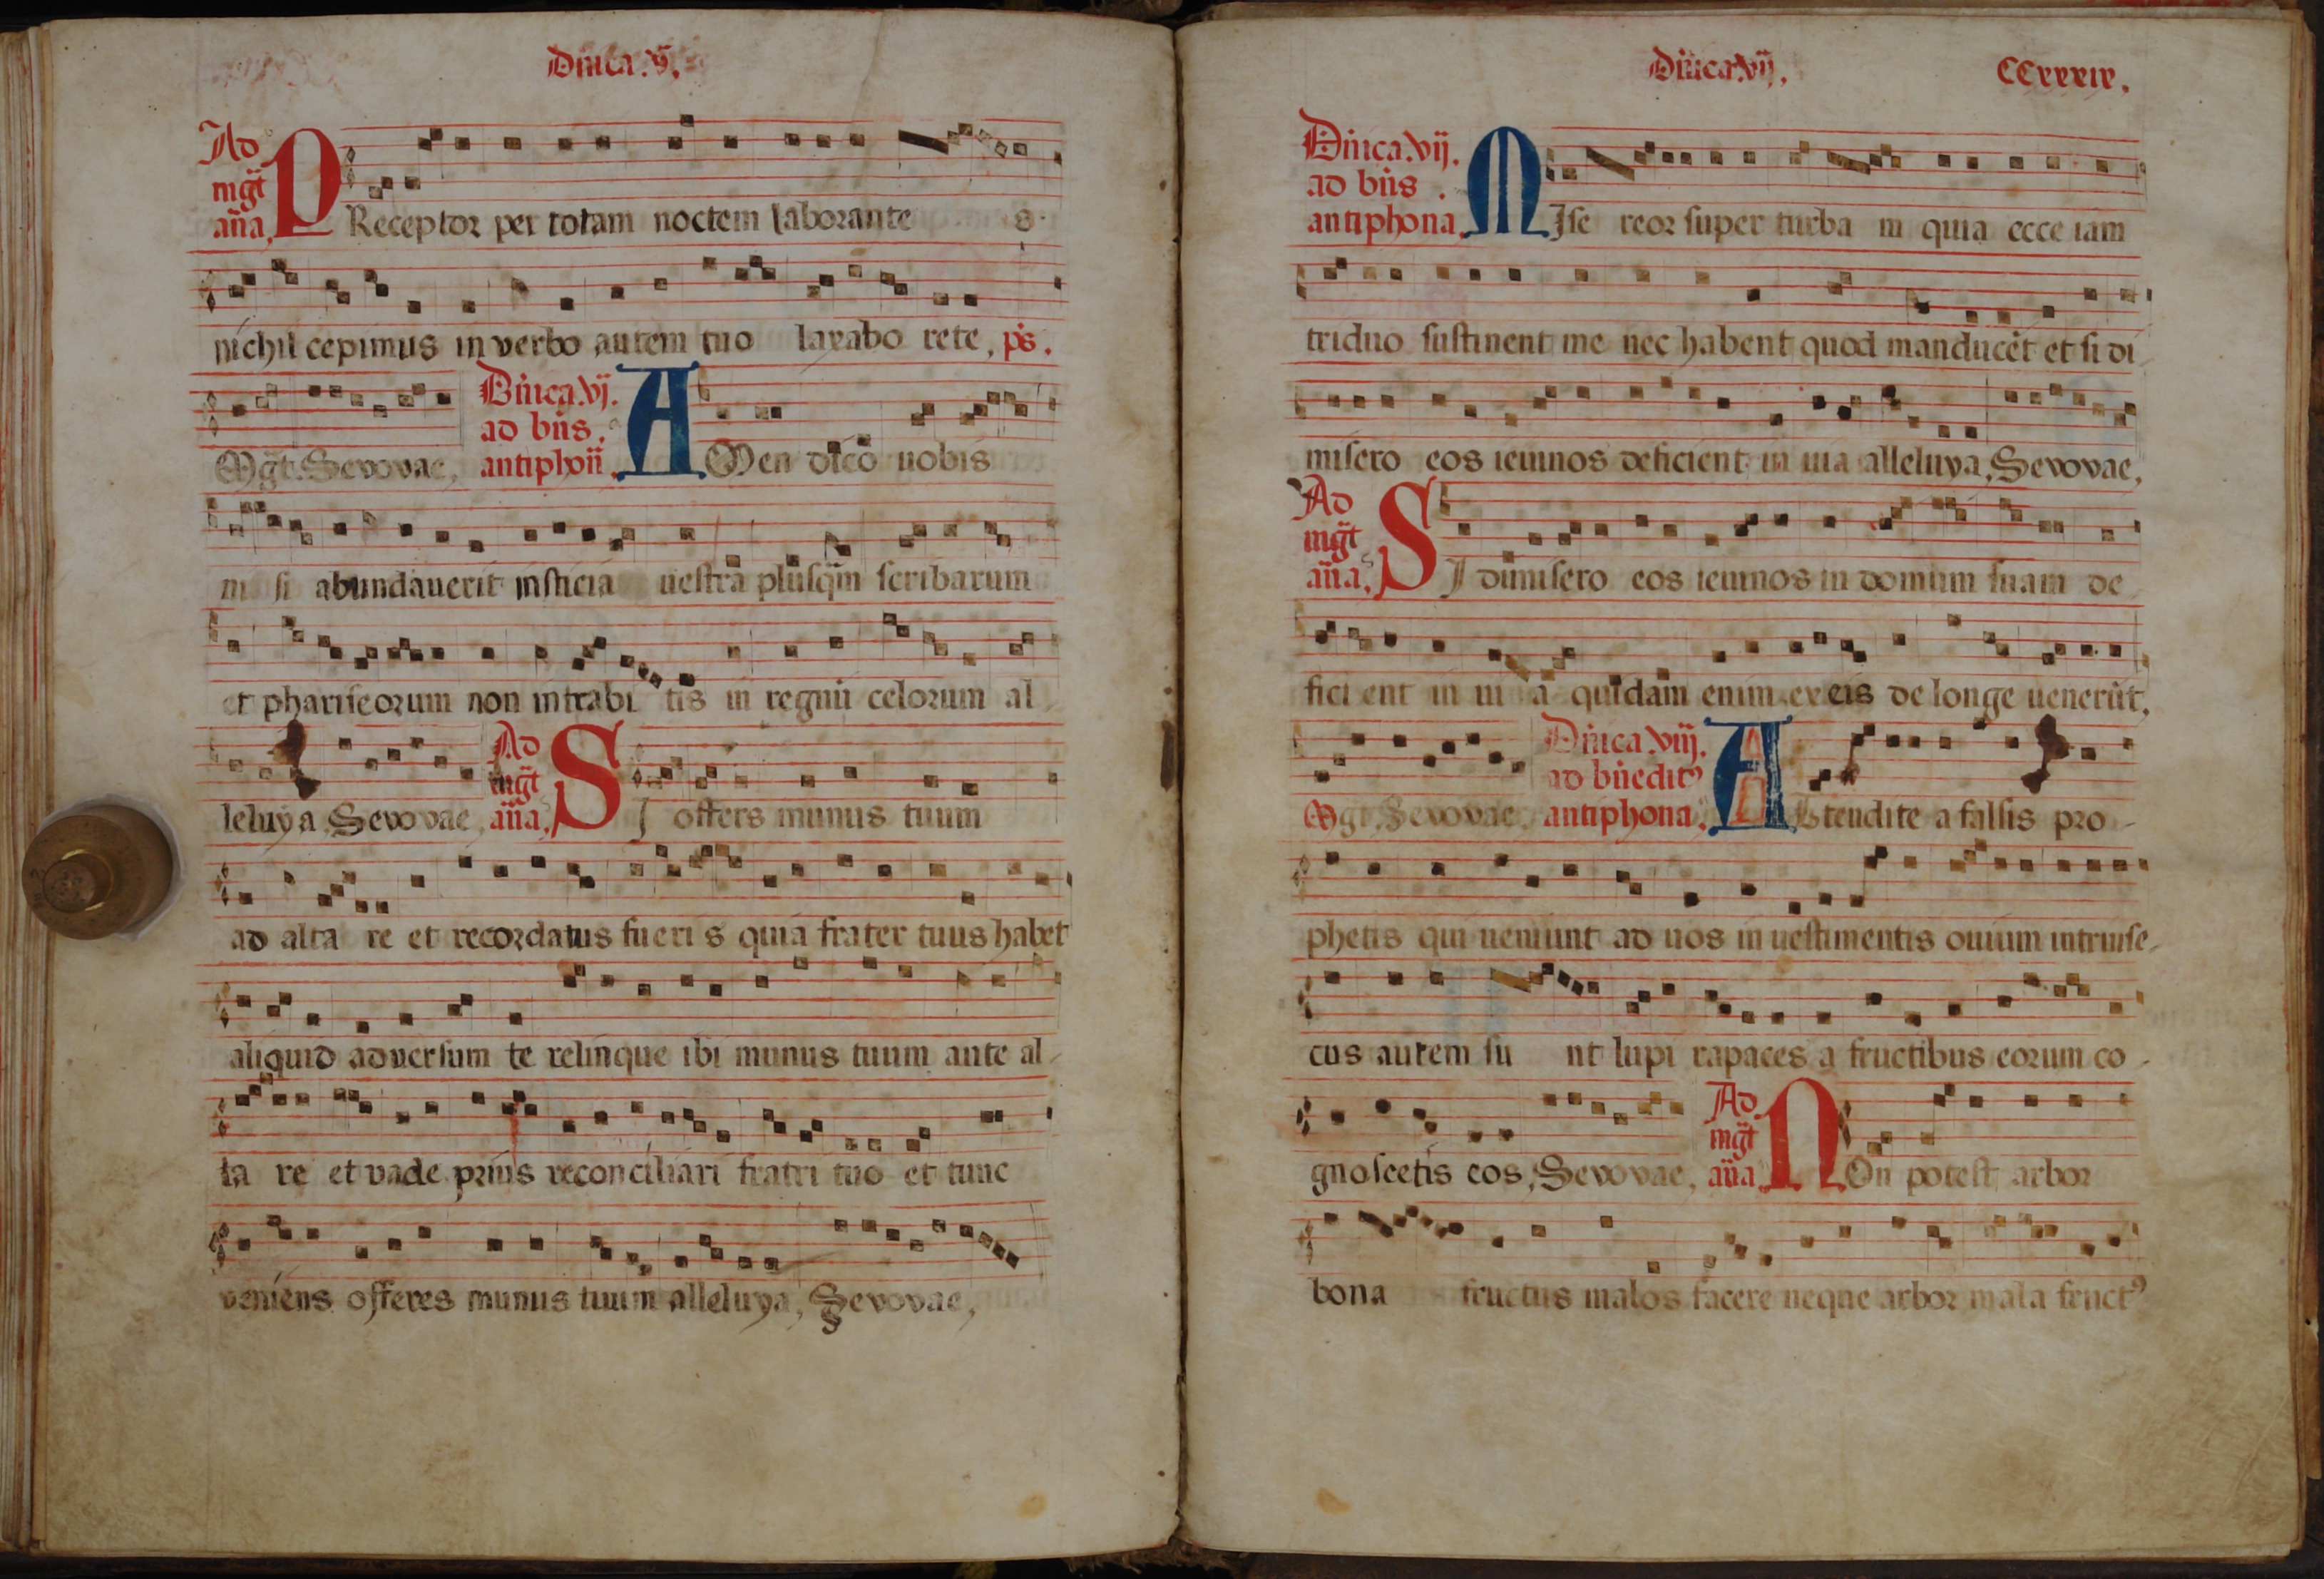 Dnica. v.
Ad
mgt
ana.
PReceptor per totam noctem laborante s.
nichil cepimus in verbo autem tuo laxabo rete, ps.
Mgt. Sevovae, Dnica. vj.
ad bns.
antiphon. AMen dico nobis
ni si abundauerit iusticia uestra plusqm scribarum
et phariseorum non intrabi tis in regnu celorum al
leluya, Sevovae, Ad
mgt
ana, SI offers munus tuum
ad alta re et recordatus fueri s quia frater tuus habet
aliquid adversum te relinque ibi munus tuum ante al-
ta re et vade prius reconciliari fratri tuo et tunc
veniens offeres munus tuum alleluya, Sevovae,
Dnica. vij. CCxxxix.
Dnica. vij.
ad bns.
antiphona, MIse reor super turba m quia ecce iam
triduo sustinent me nec habent quod manducet et si di
misero eos ieiunos deficient in uia alleluya, Sevovae,
Ad
mgt
ana, SI dimisero eos ieiunos in domum suam de
fici ent in ui a quidam enim ex eis de longe uenerut,
Mgt, Sevovae, Dnica viij.
ad bnedit9
antiphona, Attendite a falsis pro-
phetis qui ueniunt ad uos in uestimentis ouium intrinse-
cus autem su nt lupi rapaces a fructibus eorum co-
gnoscetis eos, Sevovae, Ad
mgt
ana NOn potest arbor
bona fructus malos facere neque arbor mala fruct9